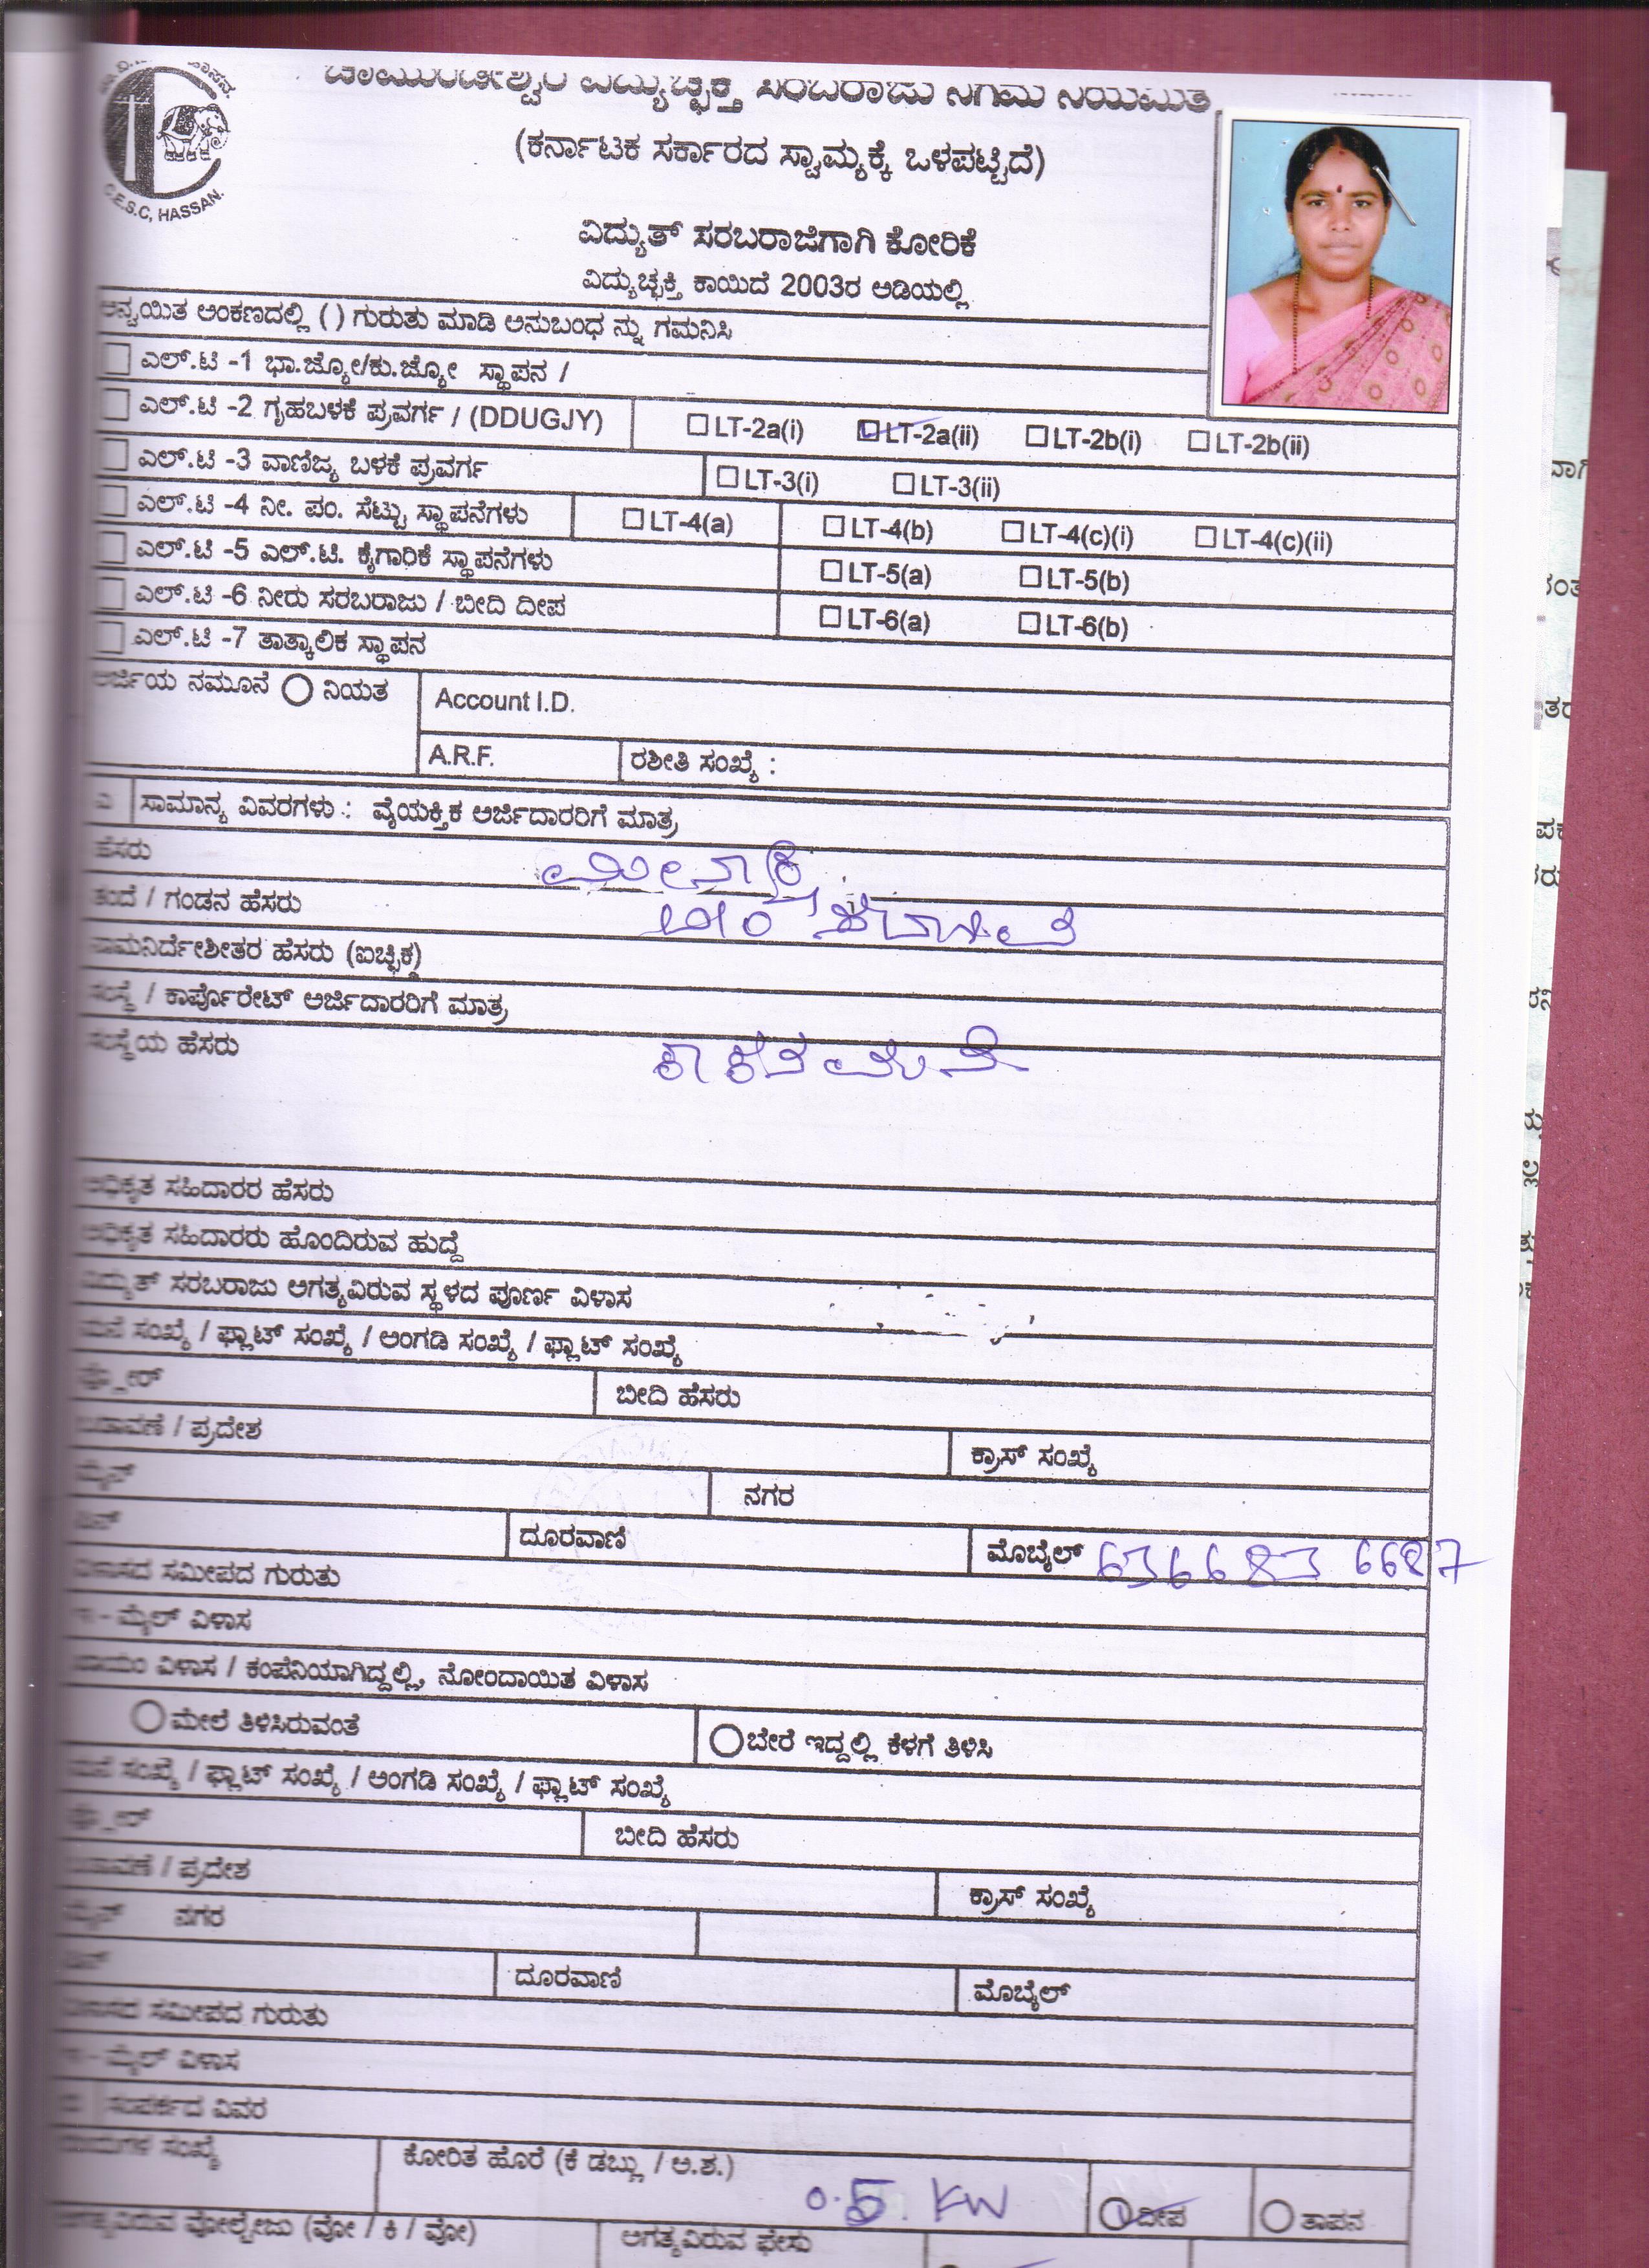 C.E.S.C, HASSAN.
ಚಾಮುಂಡೇಶ್ವರಿ ವಿದ್ಯುಚ್ಛಕ್ತಿ ಸರಬರಾಜು ನಿಗಮ ನಿಯಮಿತ
(ಕರ್ನಾಟಕ ಸರ್ಕಾರದ ಸ್ವಾಮ್ಯಕ್ಕೆ ಒಳಪಟ್ಟಿದೆ)
ವಿದ್ಯುತ್ ಸರಬರಾಜೆಗಾಗಿ ಕೋರಿಕೆ
ವಿದ್ಯುಚ್ಛಕ್ತಿ ಕಾಯಿದೆ 2003ರ ಅಡಿಯಲ್ಲಿ
ಅನ್ವಯಿತ ಅಂಕಣದಲ್ಲಿ ( ) ಗುರುತು ಮಾಡಿ ಅನುಬಂಧ ನ್ನು ಗಮನಿಸಿ
ಎಲ್.ಟಿ -1 ಭಾ.ಜ್ಯೋ/ಕು.ಜ್ಯೋ ಸ್ಥಾಪನ /
ಎಲ್.ಟಿ -2 ಗೃಹಬಳಕೆ ಪ್ರವರ್ಗ / (DDUGJY) LT-2a(i) LT-2a(ii) LT-2b(i) LT-2b(ii)
ಎಲ್.ಟಿ -3 ವಾಣಿಜ್ಯ ಬಳಕೆ ಪ್ರವರ್ಗ LT-3(i) LT-3(ii)
ಎಲ್.ಟಿ -4 ನೀ. ಪಂ. ಸೆಟ್ಟು ಸ್ಥಾಪನೆಗಳು LT-4(a) LT-4(b) LT-4(c)(i) LT-4(c)(ii)
ಎಲ್.ಟಿ -5 ಎಲ್.ಟಿ. ಕೈಗಾರಿಕೆ ಸ್ಥಾಪನೆಗಳು LT-5(a) LT-5(b)
ಎಲ್.ಟಿ -6 ನೀರು ಸರಬರಾಜು / ಬೀದಿ ದೀಪ LT-6(a) LT-6(b)
ಎಲ್.ಟಿ -7 ತಾತ್ಕಾಲಿಕ ಸ್ಥಾಪನ
ಅರ್ಜಿಯ ನಮೂನೆ ನಿಯತ Account I.D.
A.R.F. ರಶೀತಿ ಸಂಖ್ಯೆ :
ಎ ಸಾಮಾನ್ಯ ವಿವರಗಳು : ವೈಯಕ್ತಿಕ ಅರ್ಜಿದಾರರಿಗೆ ಮಾತ್ರ
ಹೆಸರು ಮೀನಾಕ್ಷಿ
ತಂದೆ / ಗಂಡನ ಹೆಸರು
ನಾಮನಿರ್ದೇಶೀತರ ಹೆಸರು (ಐಚ್ಛಿಕ)
ಸಂಸ್ಥೆ / ಕಾರ್ಪೊರೇಟ್ ಅರ್ಜಿದಾರರಿಗೆ ಮಾತ್ರ
ಸಂಸ್ಥೆಯ ಹೆಸರು
ಅಧಿಕೃತ ಸಹಿದಾರರ ಹೆಸರು
ಅಧಿಕೃತ ಸಹಿದಾರರು ಹೊಂದಿರುವ ಹುದ್ದೆ
ವಿದ್ಯುತ್ ಸರಬರಾಜು ಅಗತ್ಯವಿರುವ ಸ್ಥಳದ ಪೂರ್ಣ ವಿಳಾಸ
ಮನೆ ಸಂಖ್ಯೆ / ಫ್ಲಾಟ್ ಸಂಖ್ಯೆ / ಅಂಗಡಿ ಸಂಖ್ಯೆ / ಫ್ಲಾಟ್ ಸಂಖ್ಯೆ
ಫ್ಲೋರ್ ಬೀದಿ ಹೆಸರು
ಬಡಾವಣೆ / ಪ್ರದೇಶ ಕ್ರಾಸ್ ಸಂಖ್ಯೆ
ಮೈನ್ ನಗರ
ಪಿನ್ ದೂರವಾಣಿ ಮೊಬೈಲ್ 636683 6687
ವಿಳಾಸದ ಸಮೀಪದ ಗುರುತು
ಇ - ಮೈಲ್ ವಿಳಾಸ
ಖಾಯಂ ವಿಳಾಸ / ಕಂಪೆನಿಯಾಗಿದ್ದಲ್ಲಿ, ನೋಂದಾಯಿತ ವಿಳಾಸ
ಮೇಲೆ ತಿಳಿಸಿರುವಂತೆ ಬೇರೆ ಇದ್ದಲ್ಲಿ ಕೆಳಗೆ ತಿಳಿಸಿ
ಮನೆ ಸಂಖ್ಯೆ / ಫ್ಲಾಟ್ ಸಂಖ್ಯೆ / ಅಂಗಡಿ ಸಂಖ್ಯೆ / ಫ್ಲಾಟ್ ಸಂಖ್ಯೆ
ಫ್ಲೋರ್ ಬೀದಿ ಹೆಸರು
ಬಡಾವಣೆ / ಪ್ರದೇಶ ಕ್ರಾಸ್ ಸಂಖ್ಯೆ
ಮೈನ್ ನಗರ
ಪಿನ್ ದೂರವಾಣಿ ಮೊಬೈಲ್
ವಿಳಾಸದ ಸಮೀಪದ ಗುರುತು
ಇ - ಮೈಲ್ ವಿಳಾಸ
ಸಂಪರ್ಕದ ವಿವರ
ಸಂಖ್ಯೆ ಕೋರಿತ ಹೊರೆ (ಕೆ ಡಬ್ಲ್ಯು / ಅ.ಶ.) 0.5 KW ದೀಪ ತಾಪನ
ಅಗತ್ಯವಿರುವ ವೋಲ್ಟೇಜು (ವೋ / ಕಿ / ವೋ) ಅಗತ್ಯವಿರುವ ಫೇಸು